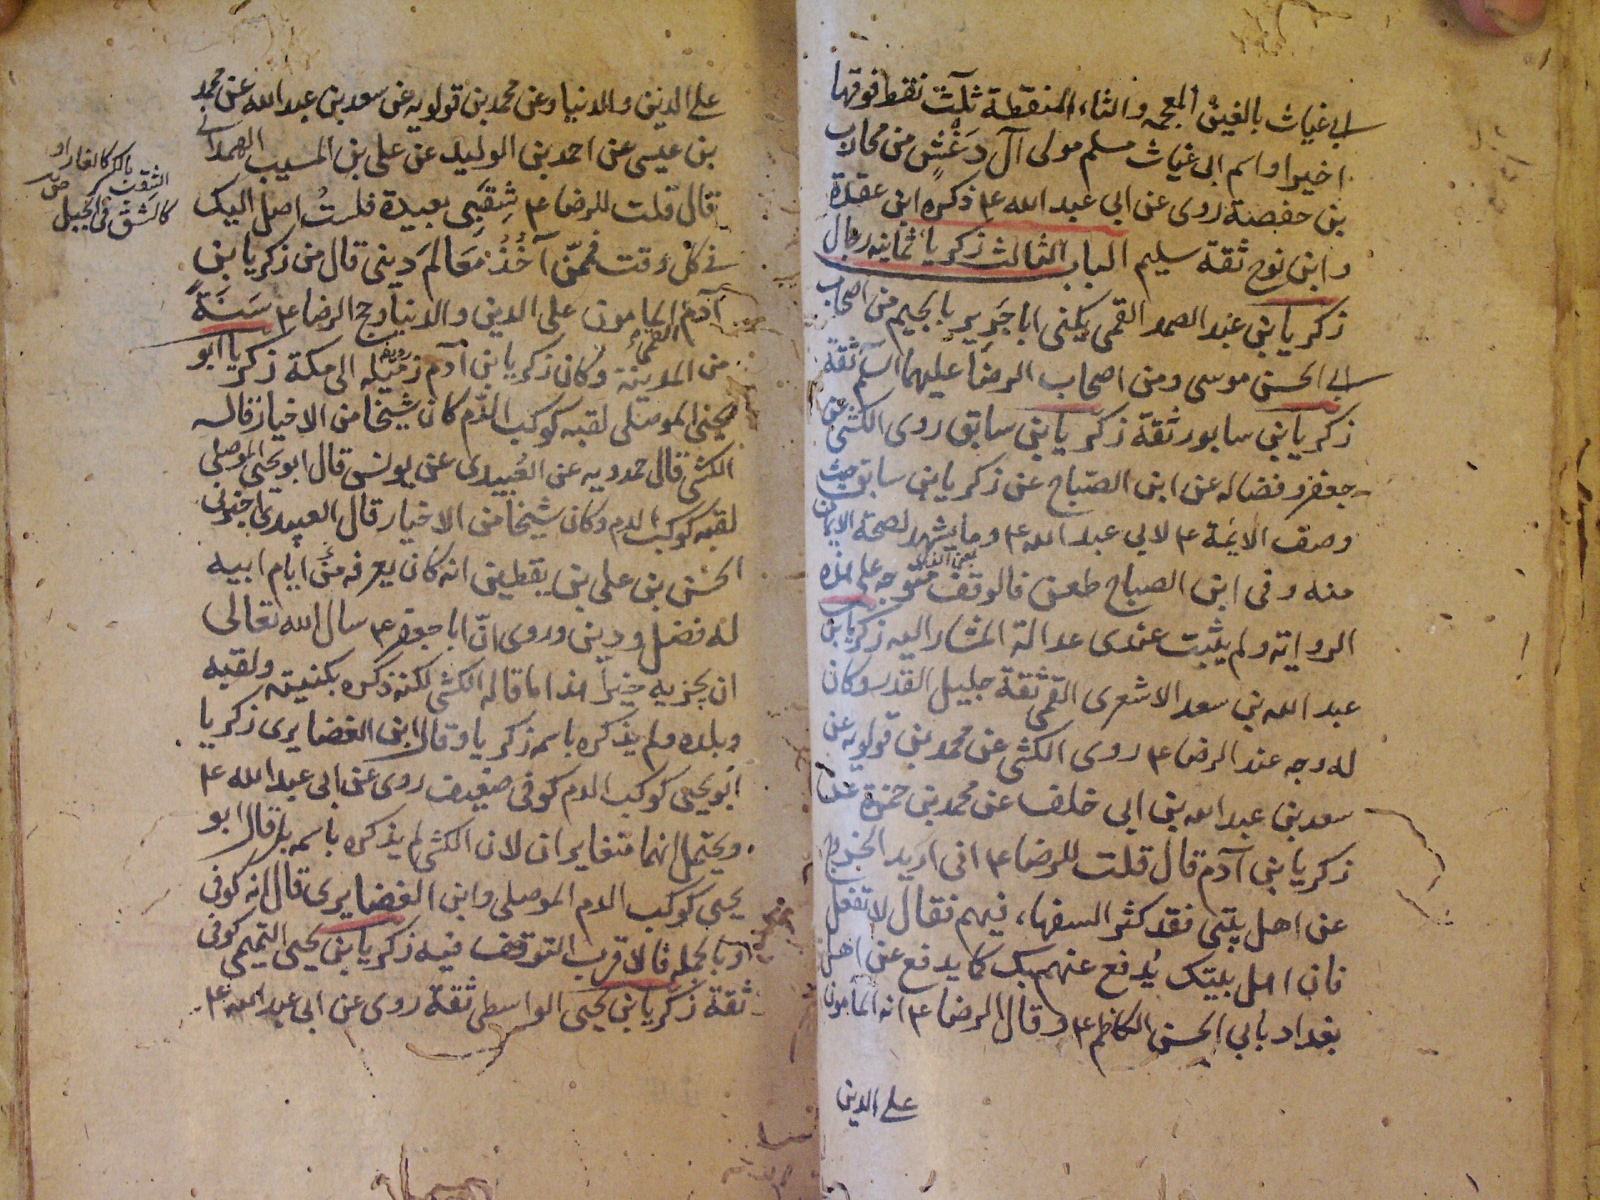 ابى غياث بالغين المعجمه والثاء المنقطة ثلث نقط فوقها
اخيرا واسم ابى غياث مسلم مولى آل دَغْشٍ من محارب
بن حفصة روى عن ابى عبد الله ع ذكره ابن عقدة
وابن نوح ثقة سليم الباب الثالث زكريا ثمانيه رجال
زكريا بن عبد الصمد القمى يكنى ابا جَرِير بالجيم من اصحاب
ابى الحسن موسى ومن اصحاب الرضا عليهما السلم ثقة
زكريا بن سابور ثقة زكريا بن سابق روى الكشى عن
جعفر وفضاله عن ابن الصباح عن زكريا بن سابق حيث
وصف الايمة ع لابى عبد الله ع وما يشهد لصحة الايمان
منه وفى ابن الصباح طعن فالوقف متوجه على هذه
الرواية ولم يثبت عندى عدالة المشار اليه زكريا بن
عبد الله بن سعد الاشعرى القمى ثقة جليل القدر وكان
له وجه عند الرضا ع روى الكشى عن محمد بن قولويه عن
سعد بن عبد الله بن ابى خلف عن محمد بن حمزة عن
زكريا بن آدم قال قلت للرضا ع انى اريد الخروج
عن اهل بيتى فقد كثر السفهاء فيهم فقال لا تفعل
فان اهل بيتك يُدفع عنهم بك كما يدفع عن اهل
بغداد بابى الحسن الكاظم ع وقال الرضا ع انه المأمون
على الدين
على الدين والدنيا وعن محمد بن قولويه عن سعد بن عبد الله عن محمد
بن عيسى عن احمد بن الوليد عن على بن المسيب الهمدانى
قال قلت للرضا ع شِقّتى بعيدة فلستُ اصل اليك
فى كل وقت فممّن آخُذُ مَعَالمَ دينى قال من زكريا بن
آدم القمى المامون على الدين والدنيا وحج الرضا ع سَنَةً
من المدينة وكان زكريا بن آدم زميله الى مكة زكريا ابو
يحيى الموصلى لقبه كوكب الدم كان شيخا من الاخيار قاله
الكشى قال حمدويه عن العُبيدى عن يونس قال ابو يحيى الموصلى
لقبه كوكب الدم وكان شيخا من الاخيار قال العبيدى اخبرنى
الحسن بن على بن يقطين انه كان يعرفه من ايام ابيه
له فضل ودين وروى انّ ابا جعفر ع سال الله تعالى
ان يجزيه خيراً هذا ما قاله الكشى لكنه ذكره بكنيته ولقبه
وبلده ولم يذكره باسم زكريا وقال ابن الغضايرى زكريا
ابو يحيى كوكب الدم كوفى ضعيف روى عن ابى عبد الله ع
ويحتمل انهما متغايران لان الكشى لم يذكره باسمه بل قال ابو
يحيى كوكب الدم الموصلى وابن الغضايرى قال انه كوفى
وبالجمله فالاقرب التوقف فيه زكريا بن يحيى التميمى كوفى
ثقة زكريا بن يحيى الواسطى ثقة روى عن ابى عبد الله ع